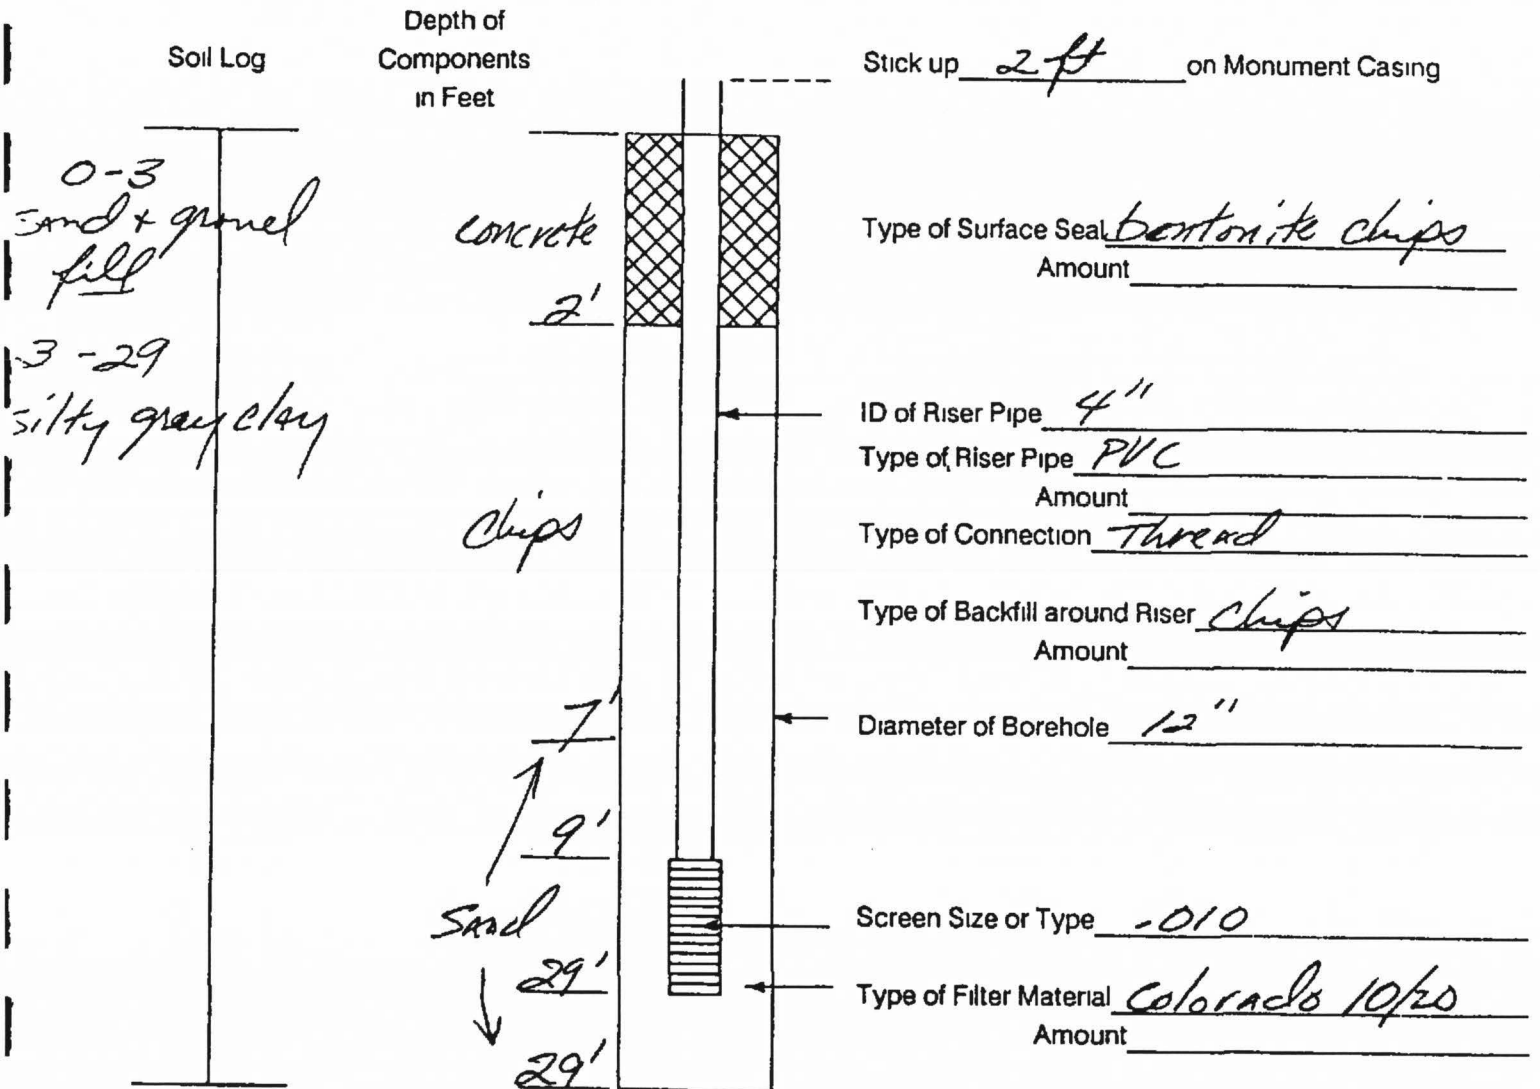 Soil Log
Depth of
Components
in Feet
0-3
Sand + gravel
fill
3-29
silty gray clay
concrete
2'
chips
7'
9'
Sand
29'
29'
Stick up 2 ft on Monument Casing
Type of Surface Seal bentonite chips
Amount
ID of Riser Pipe 4"
Type of Riser Pipe PVC
Amount
Type of Connection Thread
Type of Backfill around Riser Chips
Amount
Diameter of Borehole 12"
Screen Size or Type .010
Type of Filter Material Colorado 10/20
Amount